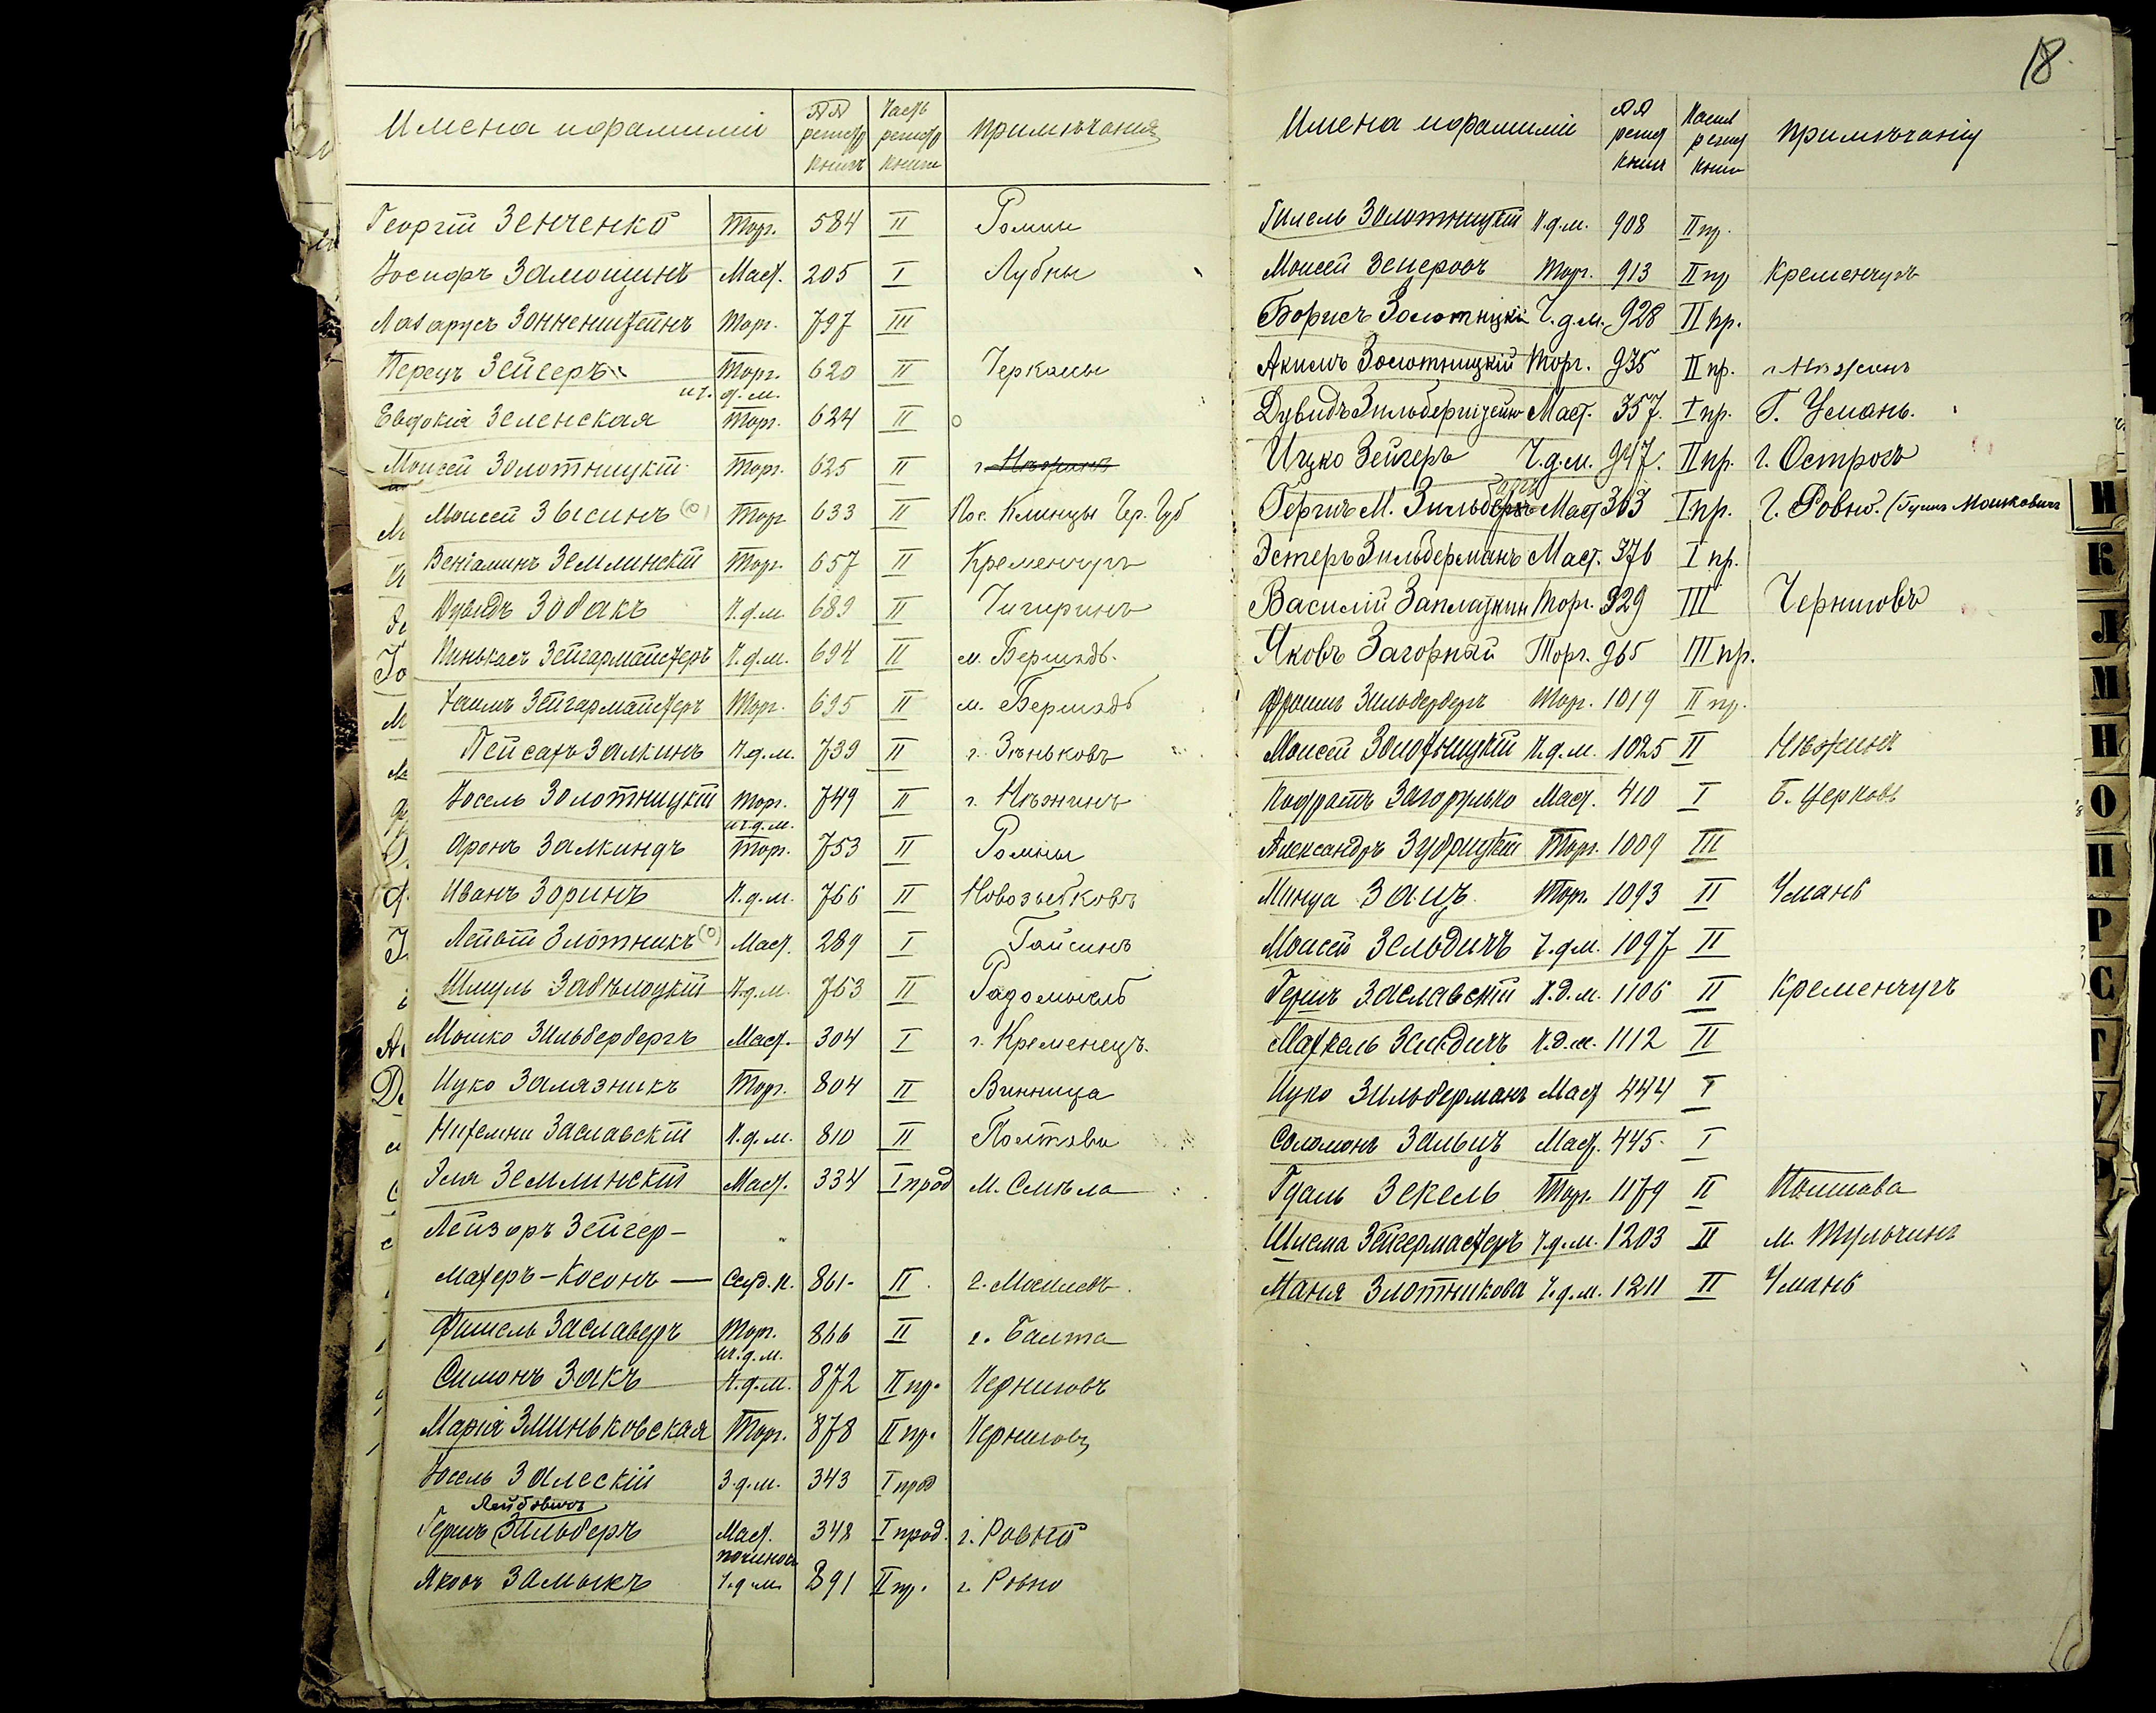 18
Имена и фамиліи №№ регистр книгъ Часть регистр книги Примѣчанія
Георгій Зенченко Торг. 584 II Ромны
Іосифъ Замощинъ Маст. 205 I Лубны
Лазарусъ Зонненштейнъ Торг. 797 III
Перецъ Зейгеръ Торг. 620 II Черкасы
и ч. д. м.
Евдокія Зеленская Торг. 624 II
Моисей Золотницкій Торг. 625 II г. Нѣжинъ
Моисей Зысинъ (о) Торг 633 II Пос. Клинцы Чр. Губ
Веніаминъ Землинскій Торг. 657 II Кременчугъ
Дувидъ Зобакъ Ч.д.м. 689 II Чигиринъ
Пинькасъ Зейгармайстеръ Ч.д.м. 694 II м. Бершадь.
Хаимъ Зейгармайстеръ Торг. 695 II м. Бершадь
Пейсахъ Залкинъ Ч.д.м. 739 II г. Зѣньковъ
Іосель Золотницкій Торг. 749 II г. Нѣжинъ
и ч.д.м.
Аронъ Залкиндъ Торг. 753 II Ромны
Иванъ Зоринъ Ч.д.м. 766 II Новозыбковъ
Лейбъ Злотникъ (о) Маст. 289 I Гайсинъ
Шмуль Забѣлоцкій Ч.д.м. 763 II Радомысль
Мошко Зильбербергъ Маст. 304 I г. Кременецъ.
Ицко Залязникъ Торг. 804 II Винница
Заславскій Ч.д.м. 810 II Полтава
Эля Землинскій Маст. 334 I прод М. Смѣла
Лейзоръ Зейгер-
махеръ-Косонъ — 861- II г. Могилевъ
Фишель Заславеръ Торг. 866 II г. Балта
и ч.д.м.
Симонъ Закъ Ч.д.м. 872 II пр. Черниговъ
Марія Зминьковская Торг. 878 II пр. Черниговъ
Іосель Залескій З.д.м. 343 I прод
Лейбовичъ
Гершъ Зильберъ Маст. 348 I прод. г. Ровно
Яковъ Замыкъ Ч.д.м. 891 II пр. г. Ровно
Имена и фамиліи №№ регист книгъ Часть регист книги Примѣчанія
Гилель Золотницкій Ч.д.м. 908 II пр.
Моисей Зецеровъ Торг. 913 II пр Кременчугъ
Борисъ Золотницкій Ч.д.м. 928 II пр.
Акимъ Золотницкій Торг. 935 II пр. г. Нѣжинъ
Дувидъ Зильберштейнъ Маст. 357. I пр. Г. Умань.
Ицко Зейгеръ Ч.д.м. 947. II пр. г. Острогъ
Гершъ М. Зильберъ Маст 363 I пр. Г. Ровно. (Гершъ Мошковичъ
Эстеръ Зильберманъ Маст. 376 I пр.
Василій Заплаткин Торг. 929 III Черниговъ
Яковъ Загорный Торг. 965 III пр.
Фроимъ Зильбербергъ Торг. 1019 II пр.
Моисей Золотницкій Ч.д.м. 1025 II Нѣжинъ
Кодратъ Загорулько Маст. 410 I Б. Церковь
Александръ Зубрицкій Торг. 1009 III
Минца Зацъ Торг. 1093 II Умань
Моисей Зельдичъ Ч.д.м. 1097 II
Гершъ Заславскій Ч.д.м. 1106 II Кременчугъ
Зельдичъ Ч.д.м. 1112 II
Ицко Зильберманъ Маст 444 I
Соломонъ Зальцъ Маст. 445. I
Гдаль Зекель Торг. 1179 II Полтава
Шлема Зейгермастеръ Ч.д.м. 1203 II м. Тульчинъ
Маня Злотникова Ч.д.м. 1211 II Умань
И
К
Л
М
Н
О
П
Р
С
Т
У